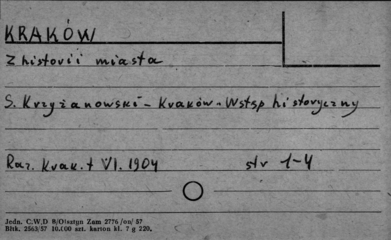 KRAKÓW
Z historii miasta
S. Krzyżanowski - Kraków - Wstęp historyczny
Roz. Krak. t VI. 1904 str 1-4
Jedn. C.W.D 8/Olsztyn Zam 2776/on/57
Bltk. 2563/57 10.000 art. karton kl. 7 g 220.